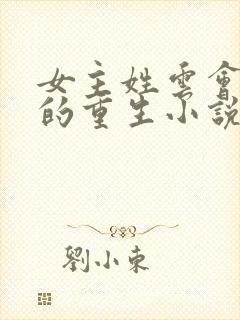 女主姓雲會
的重生小說
劉小東